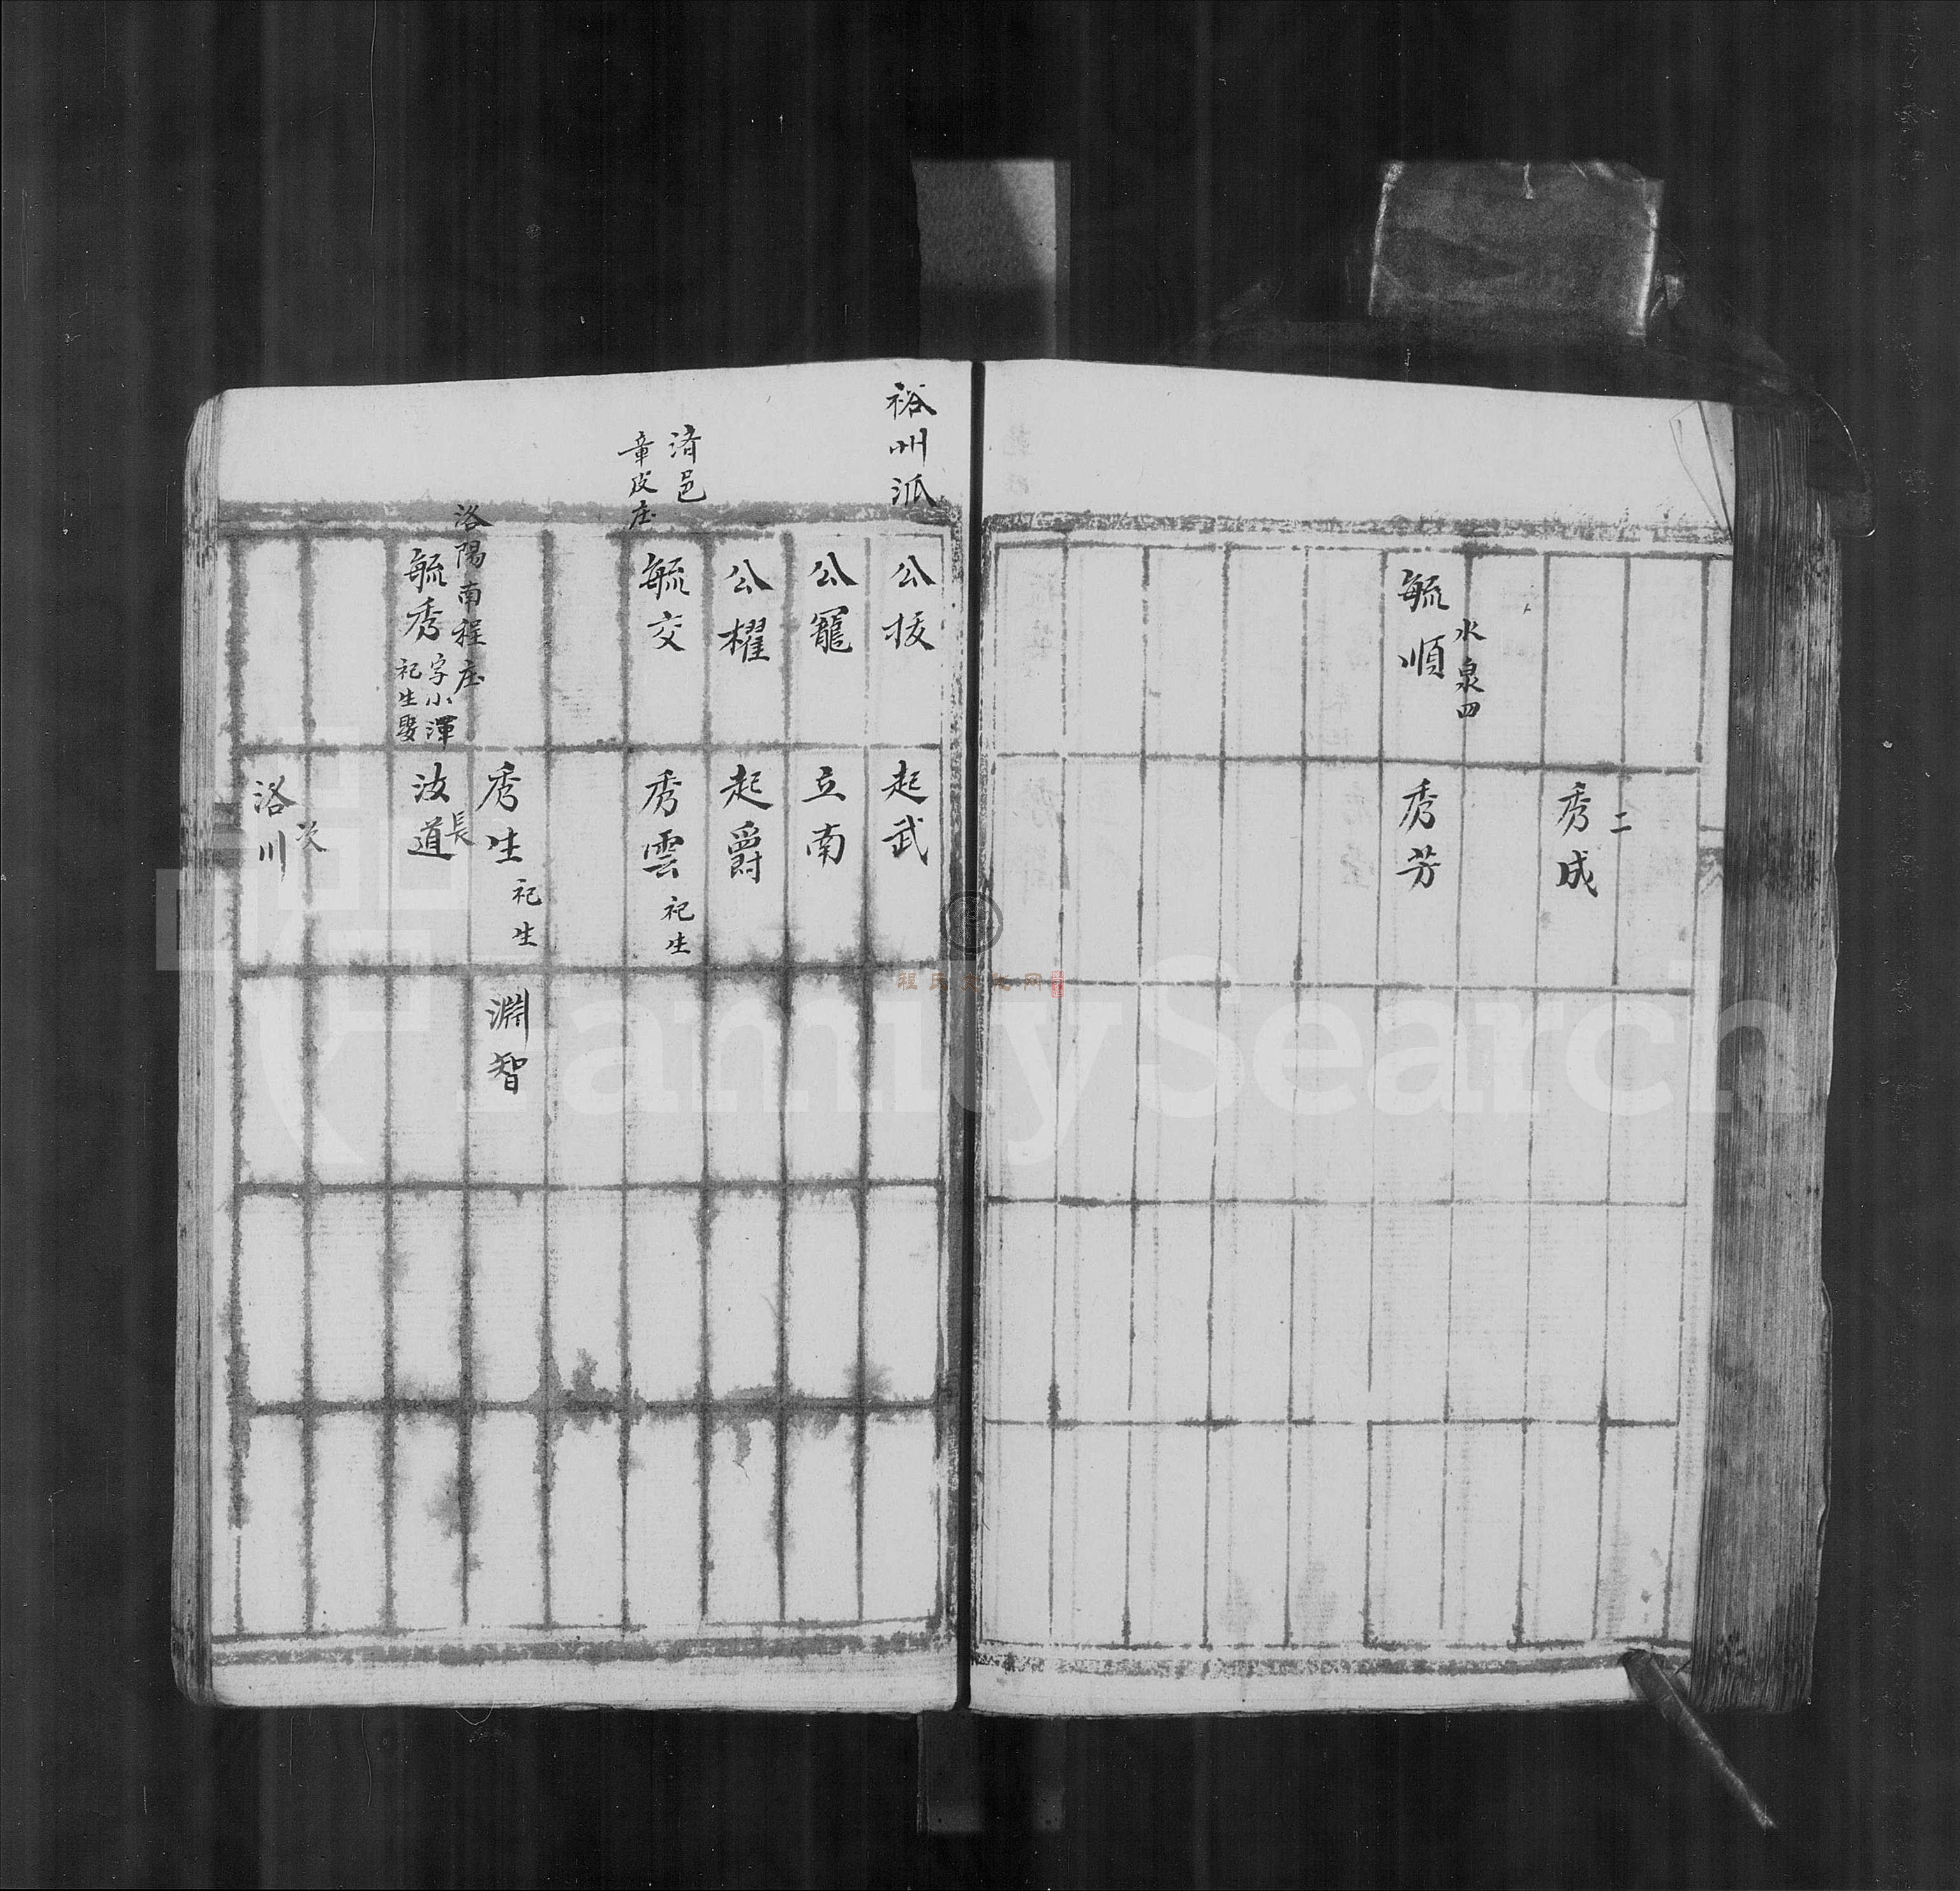 二
秀成
水泉四
毓順
秀芳
裕州派
公拔
起武
公寵
立南
公櫂
起爵
済邑
章皮庄
毓交
秀雲 祀生
秀生 祀生
淵智
洛陽南程庄
毓秀 字小渾
祀生娶
長
汝道
次
洛川
程氏文化网
FamilySearch